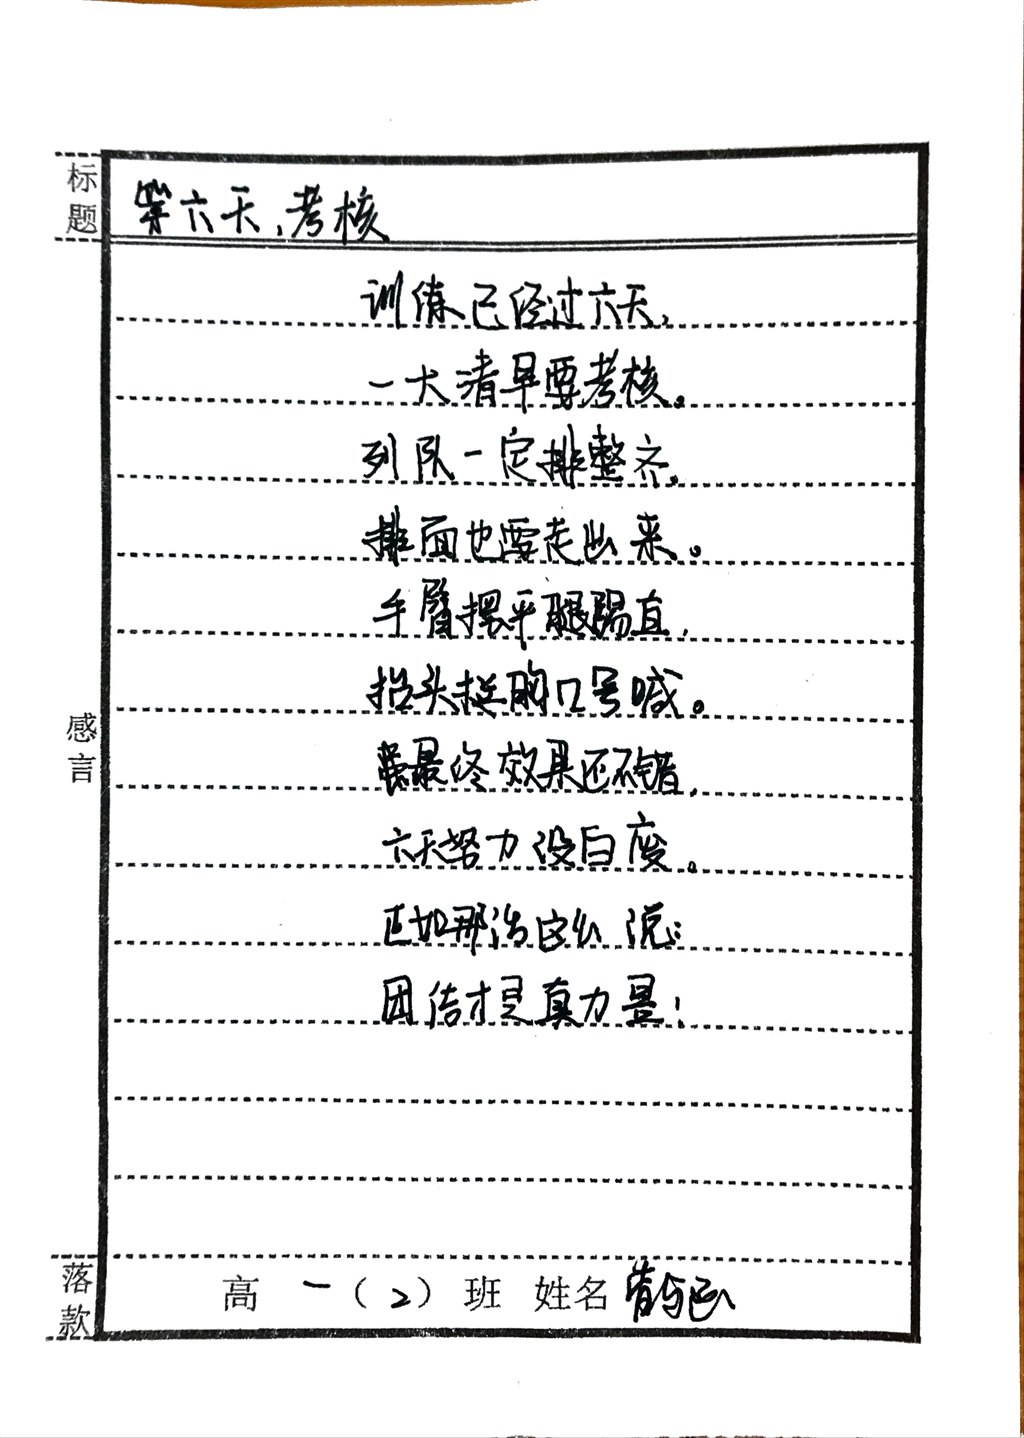 标题
第六天,考核
训练已经过六天,
一大清早要考核。
列队一定排整齐,
排面也要走出来。
手臂摆平腿踢直,
抬头挺胸口号喊。
最终效果还不错,
六天努力没白废。
正如那话这么说:
团结才是真力量!
感言
落款
高一(2)班 姓名